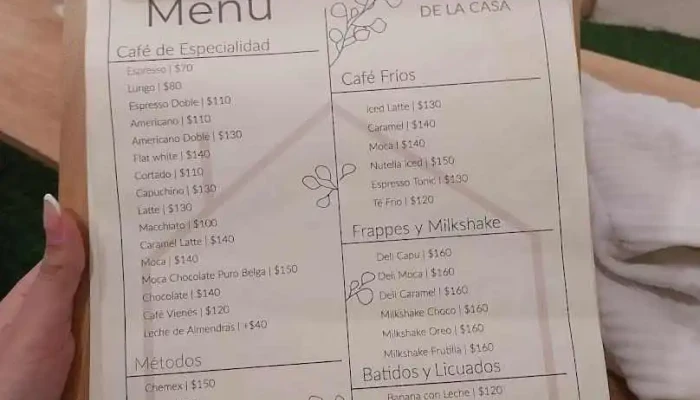 Menu
Café de Especialidad
Espresso | $70
Lungo | $80
Espresso Doble | $110
Americano | $110
Americano Doble | $130
Flat white | $140
Cortado | $110
Capuchino | $130
Latte | $130
Macchiato | $100
Caramel Latte | $140
Moca | $140
Moca Chocolate Puro Belga | $150
Chocolate | $140
Café Vienés | $120
Leche de Almendras | +$40
Métodos
Chemex | $150
DE LA CASA
Café Frios
Iced Latte | $130
Caramel | $140
Moca | $140
Nutella iced | $150
Espresso Tonic | $130
Té Frio | $120
Frappes y Milkshake
Deli Capu | $160
Deli Moca | $160
Deli Caramel | $160
Milkshake Choco | $160
Milkshake Oreo | $160
Milkshake Frutilla | $160
Batidos y Licuados
Banana con Leche | $120